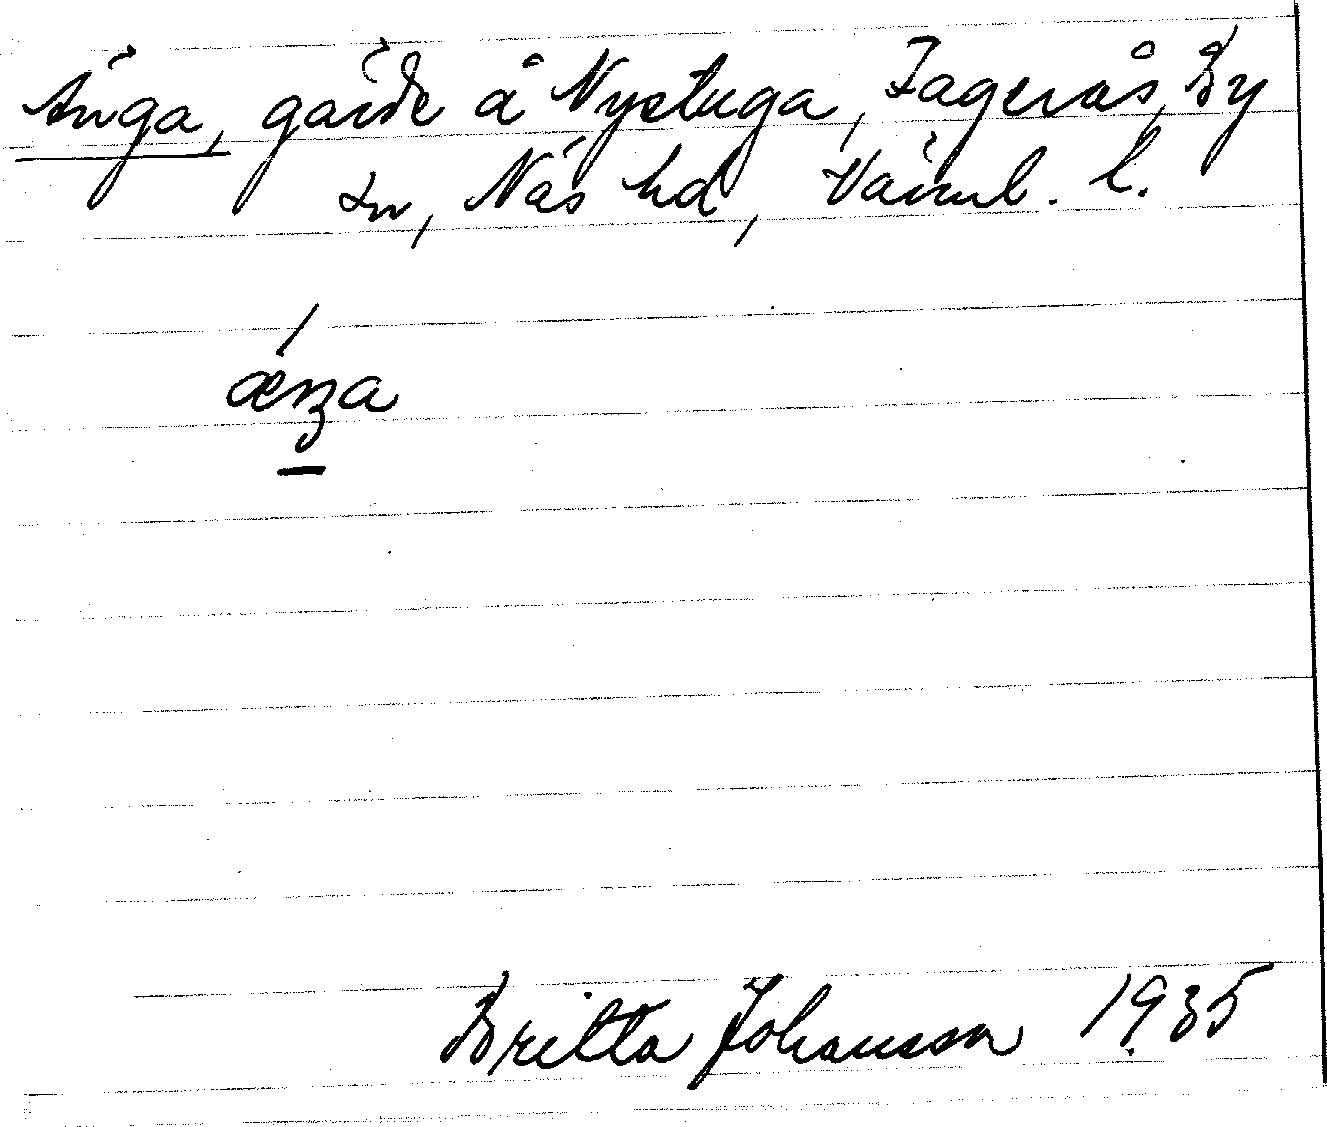 Änga, gärde å Nystuga, Fagerås, By
sn, Näs hd, Värml. l.
ænga
Britta Johansson 1935